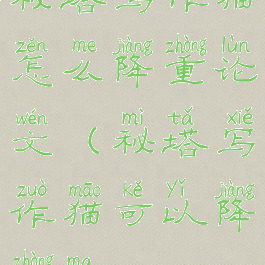 秘塔写作猫
zěn me jiàng zhòng lùn
怎么降重论
wén mì tǎ xiě
文（秘塔写
zuò māo kě yǐ jiàng
作猫可以降
zhòng ma